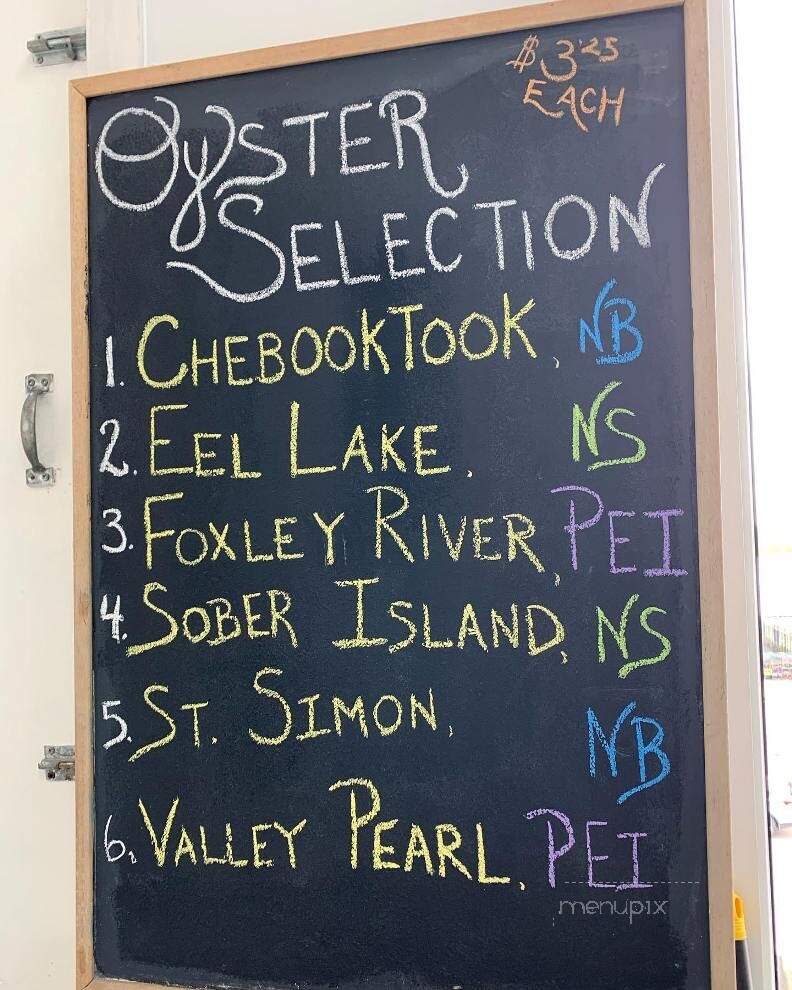 $3.25
EACH
OYSTER
SELECTION
1. CHEBOOKTOOK, NB
2. EEL LAKE, NS
3. FOXLEY RIVER, PEI
4. SOBER ISLAND, NS
5. ST. SIMON, NB
6. VALLEY PEARL, PEI
menupix